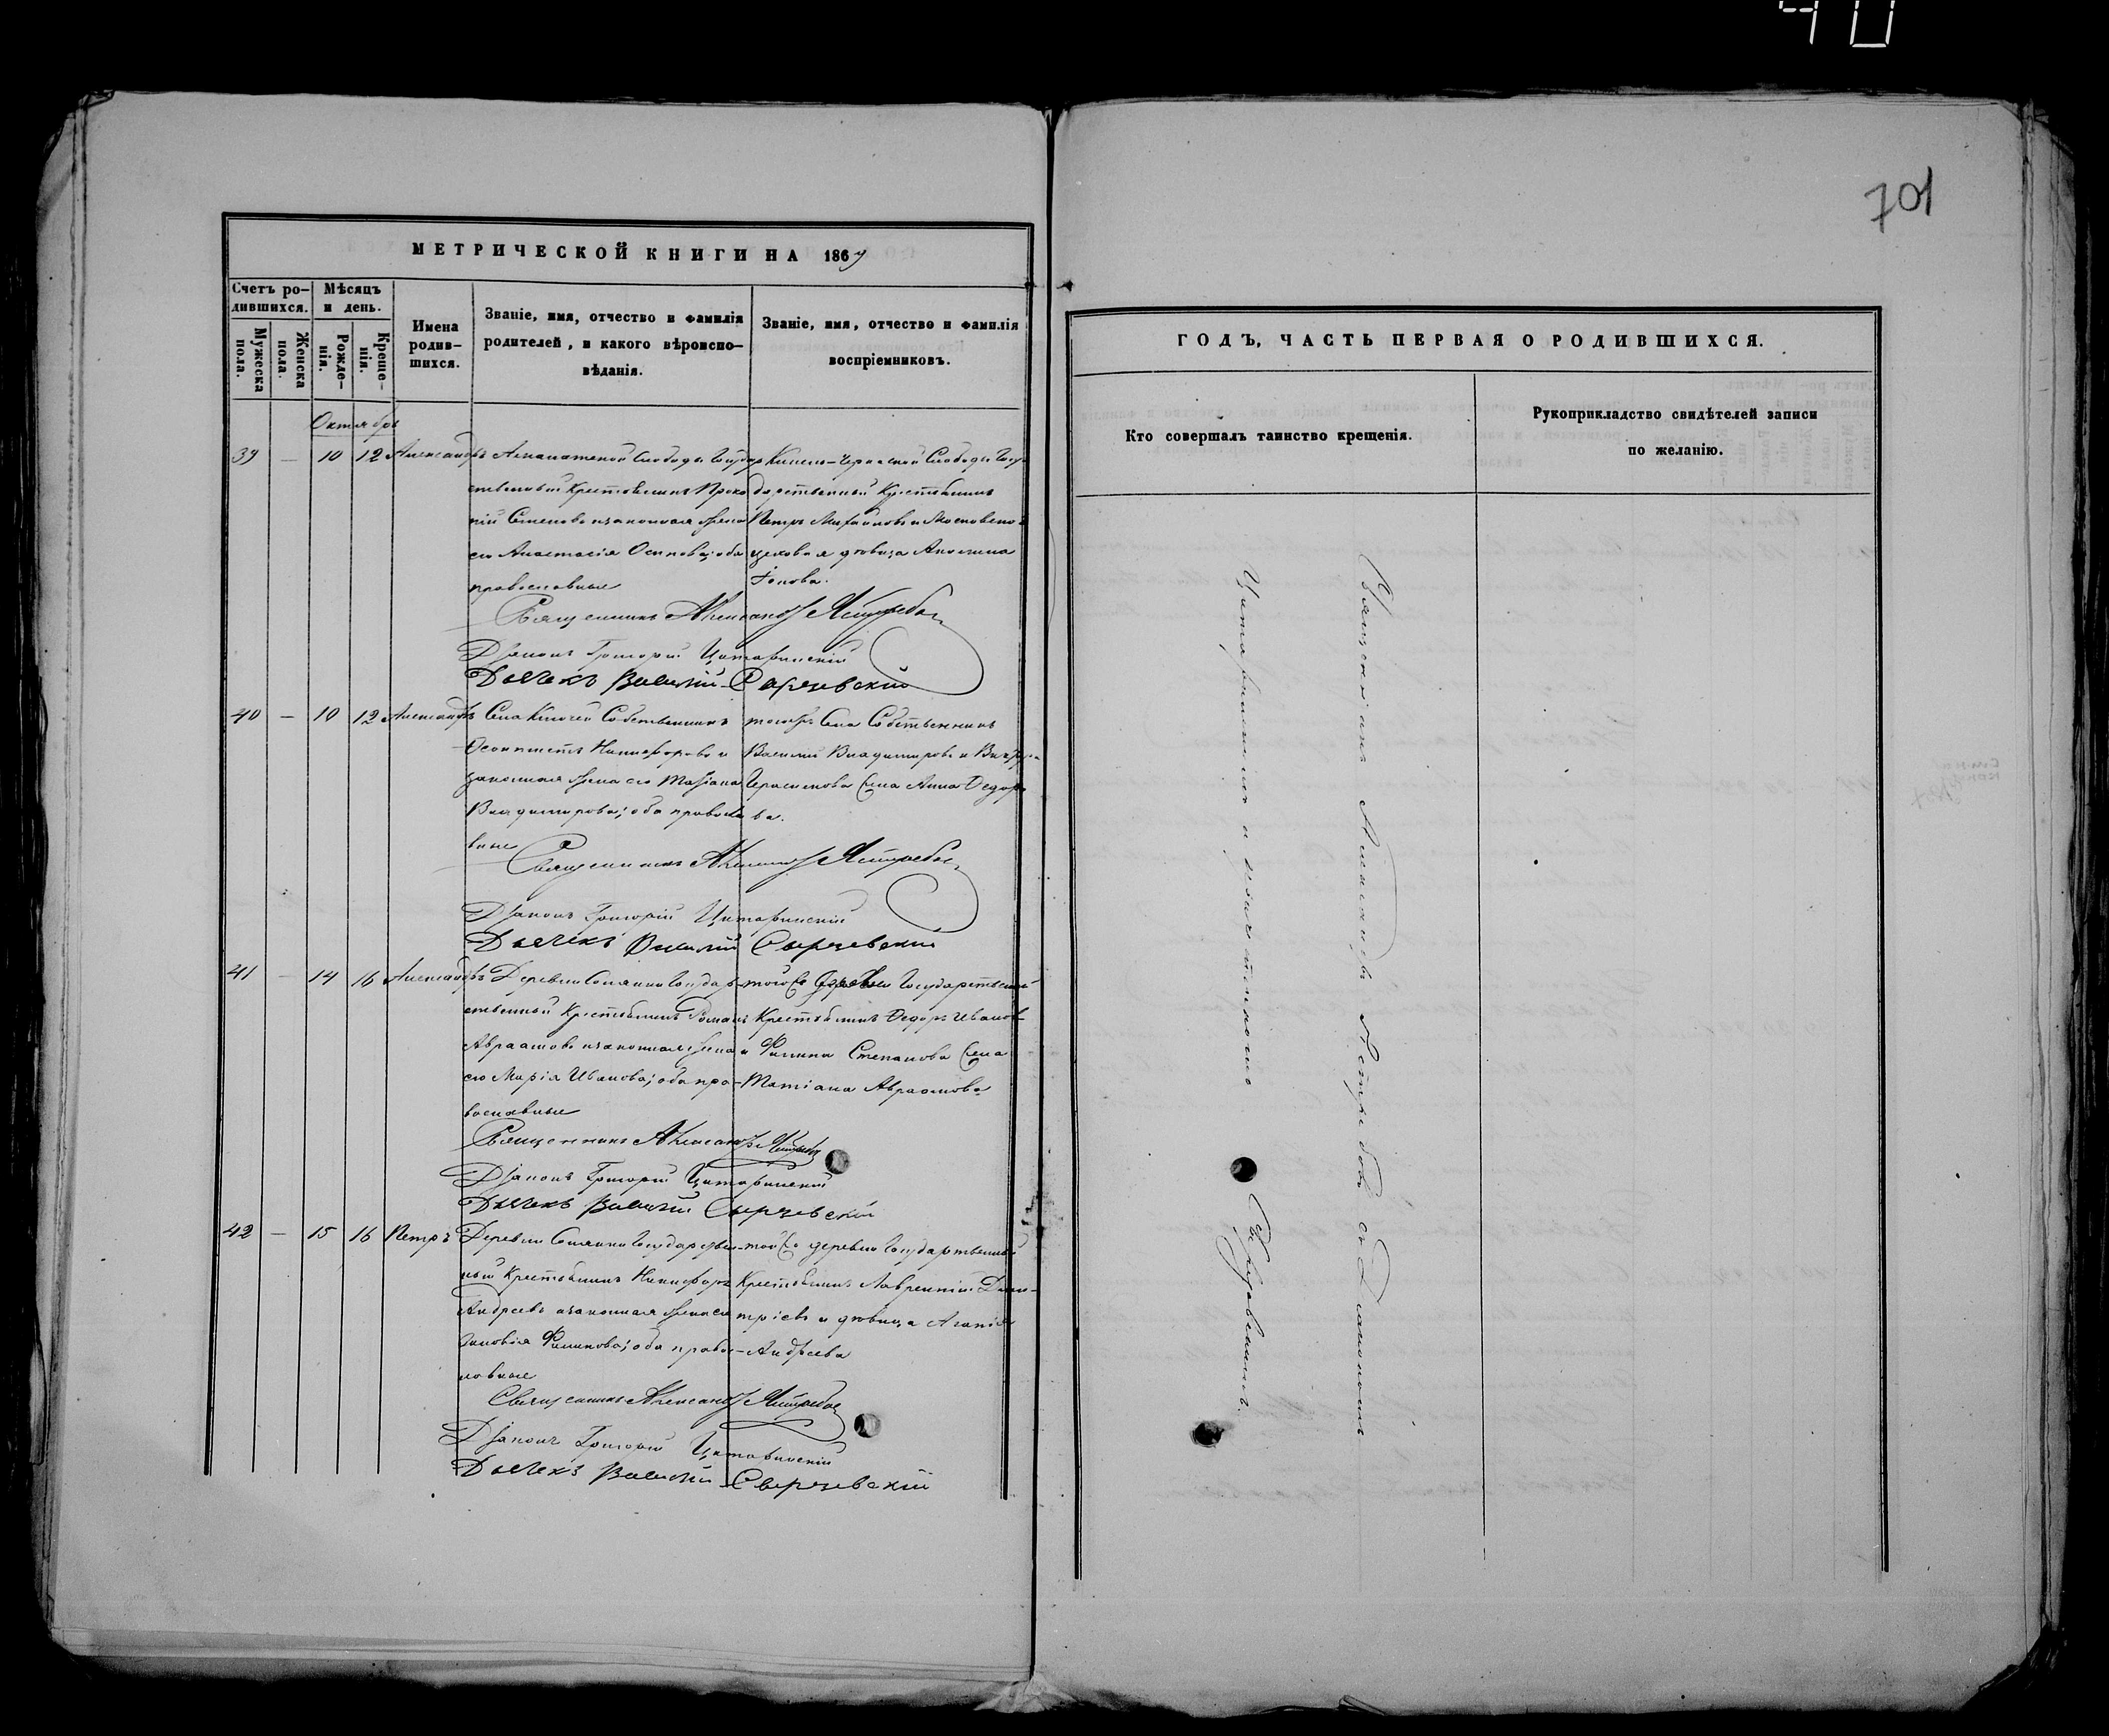 40
701
МЕТРИЧЕСКОЙ КНИГИ НА 1867
Счетъ ро-
дившихся.
Мѣсяцъ
и день.
Мужеска
пола.
Женска
пола.
Рожде-
нія.
Креще-
нія.
Имена
родив-
шихся.
Званіе, имя, отчество и фамилія
родителей, и какого вѣроиспо-
вѣданія.
Званіе, имя, отчество и фамилія
воспріемниковъ.
Октябрь
39 — 10 12 Александръ
Слободы Государ
ственный Крестьянинъ Проко
пій Семеновъ и законная жена
его Анастасія Осипова; оба
православные
Слободы Госу-
дарственный Крестьянинъ
Петръ Михайловъ и
цеховая дѣвица
Іонова.
Священникъ Александръ Ястребовъ
Діаконъ Григорій
Дьячекъ Василій
40 — 10 12 Александръ
Села Ключей Собственникъ
Никифоровъ и
законная жена его Татіана
Владимирова; оба правосла
вные
тогожъ Села Собственникъ
Василій Владимировъ и
Герасимова жена Анна Ѳедоро
ва.
Священникъ Александръ Ястребовъ
Діаконъ Григорій
Дьячекъ Василій
41 — 14 16 Александръ
Деревни Государ-
ственный Крестьянинъ Романъ
Авраамовъ и законная жена
его Марія Иванова; оба пра-
вославные
той же деревни Государственный
Крестьянинъ Ѳедоръ Ивановъ
и Филипа Степанова жена
Татіана Авраамова
Священникъ Александръ Ястребовъ
Діаконъ Григорій
Дьячекъ Василій
42 — 15 16 Петръ
Деревни Государствен-
ный Крестьянинъ Никифоръ
Андреевъ и законная жена его
Зиновія Филипова; оба правос-
лавные
той же деревни Государственный
Крестьянинъ Лаврентій Дими-
тріевъ и дѣвица Агапія
Андреева
Священникъ Александръ Ястребовъ
Діаконъ Григорій
Дьячекъ Василій
ГОДЪ, ЧАСТЬ ПЕРВАЯ О РОДИВШИХСЯ.
Кто совершалъ таинство крещенія.
Рукоприкладство свидѣтелей записи
по желанію.
Священникъ Александръ Ястребовъ съ Діакономъ
и